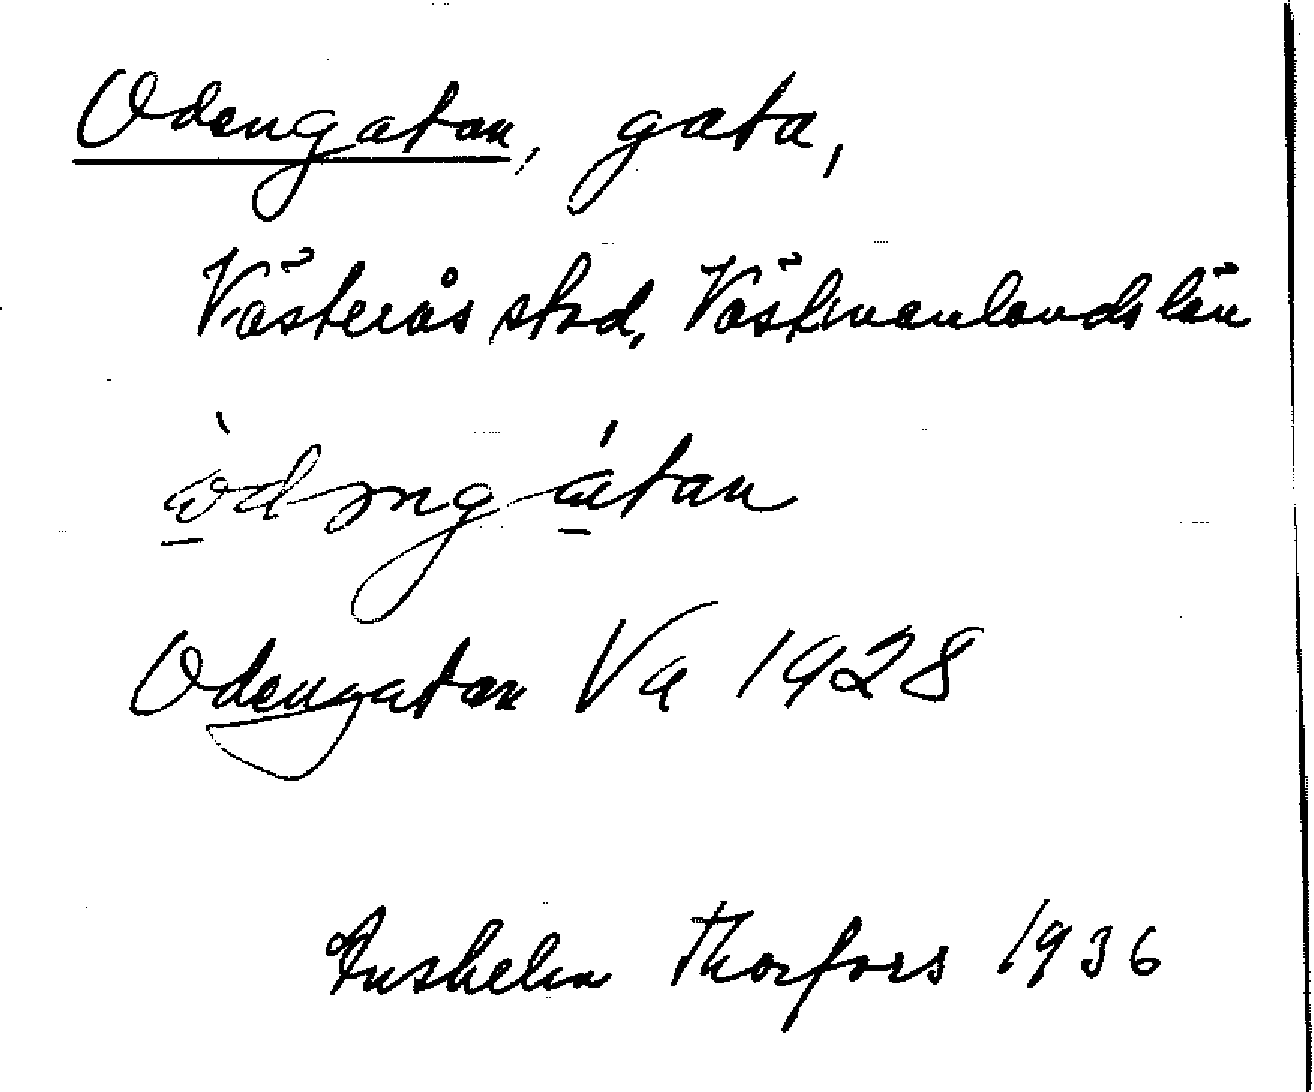 Odengatan, gata,
Västerås stad, Västmanlands län
òdəngátan
Odengatan Va 1928
Anshelm Thorfors 1936